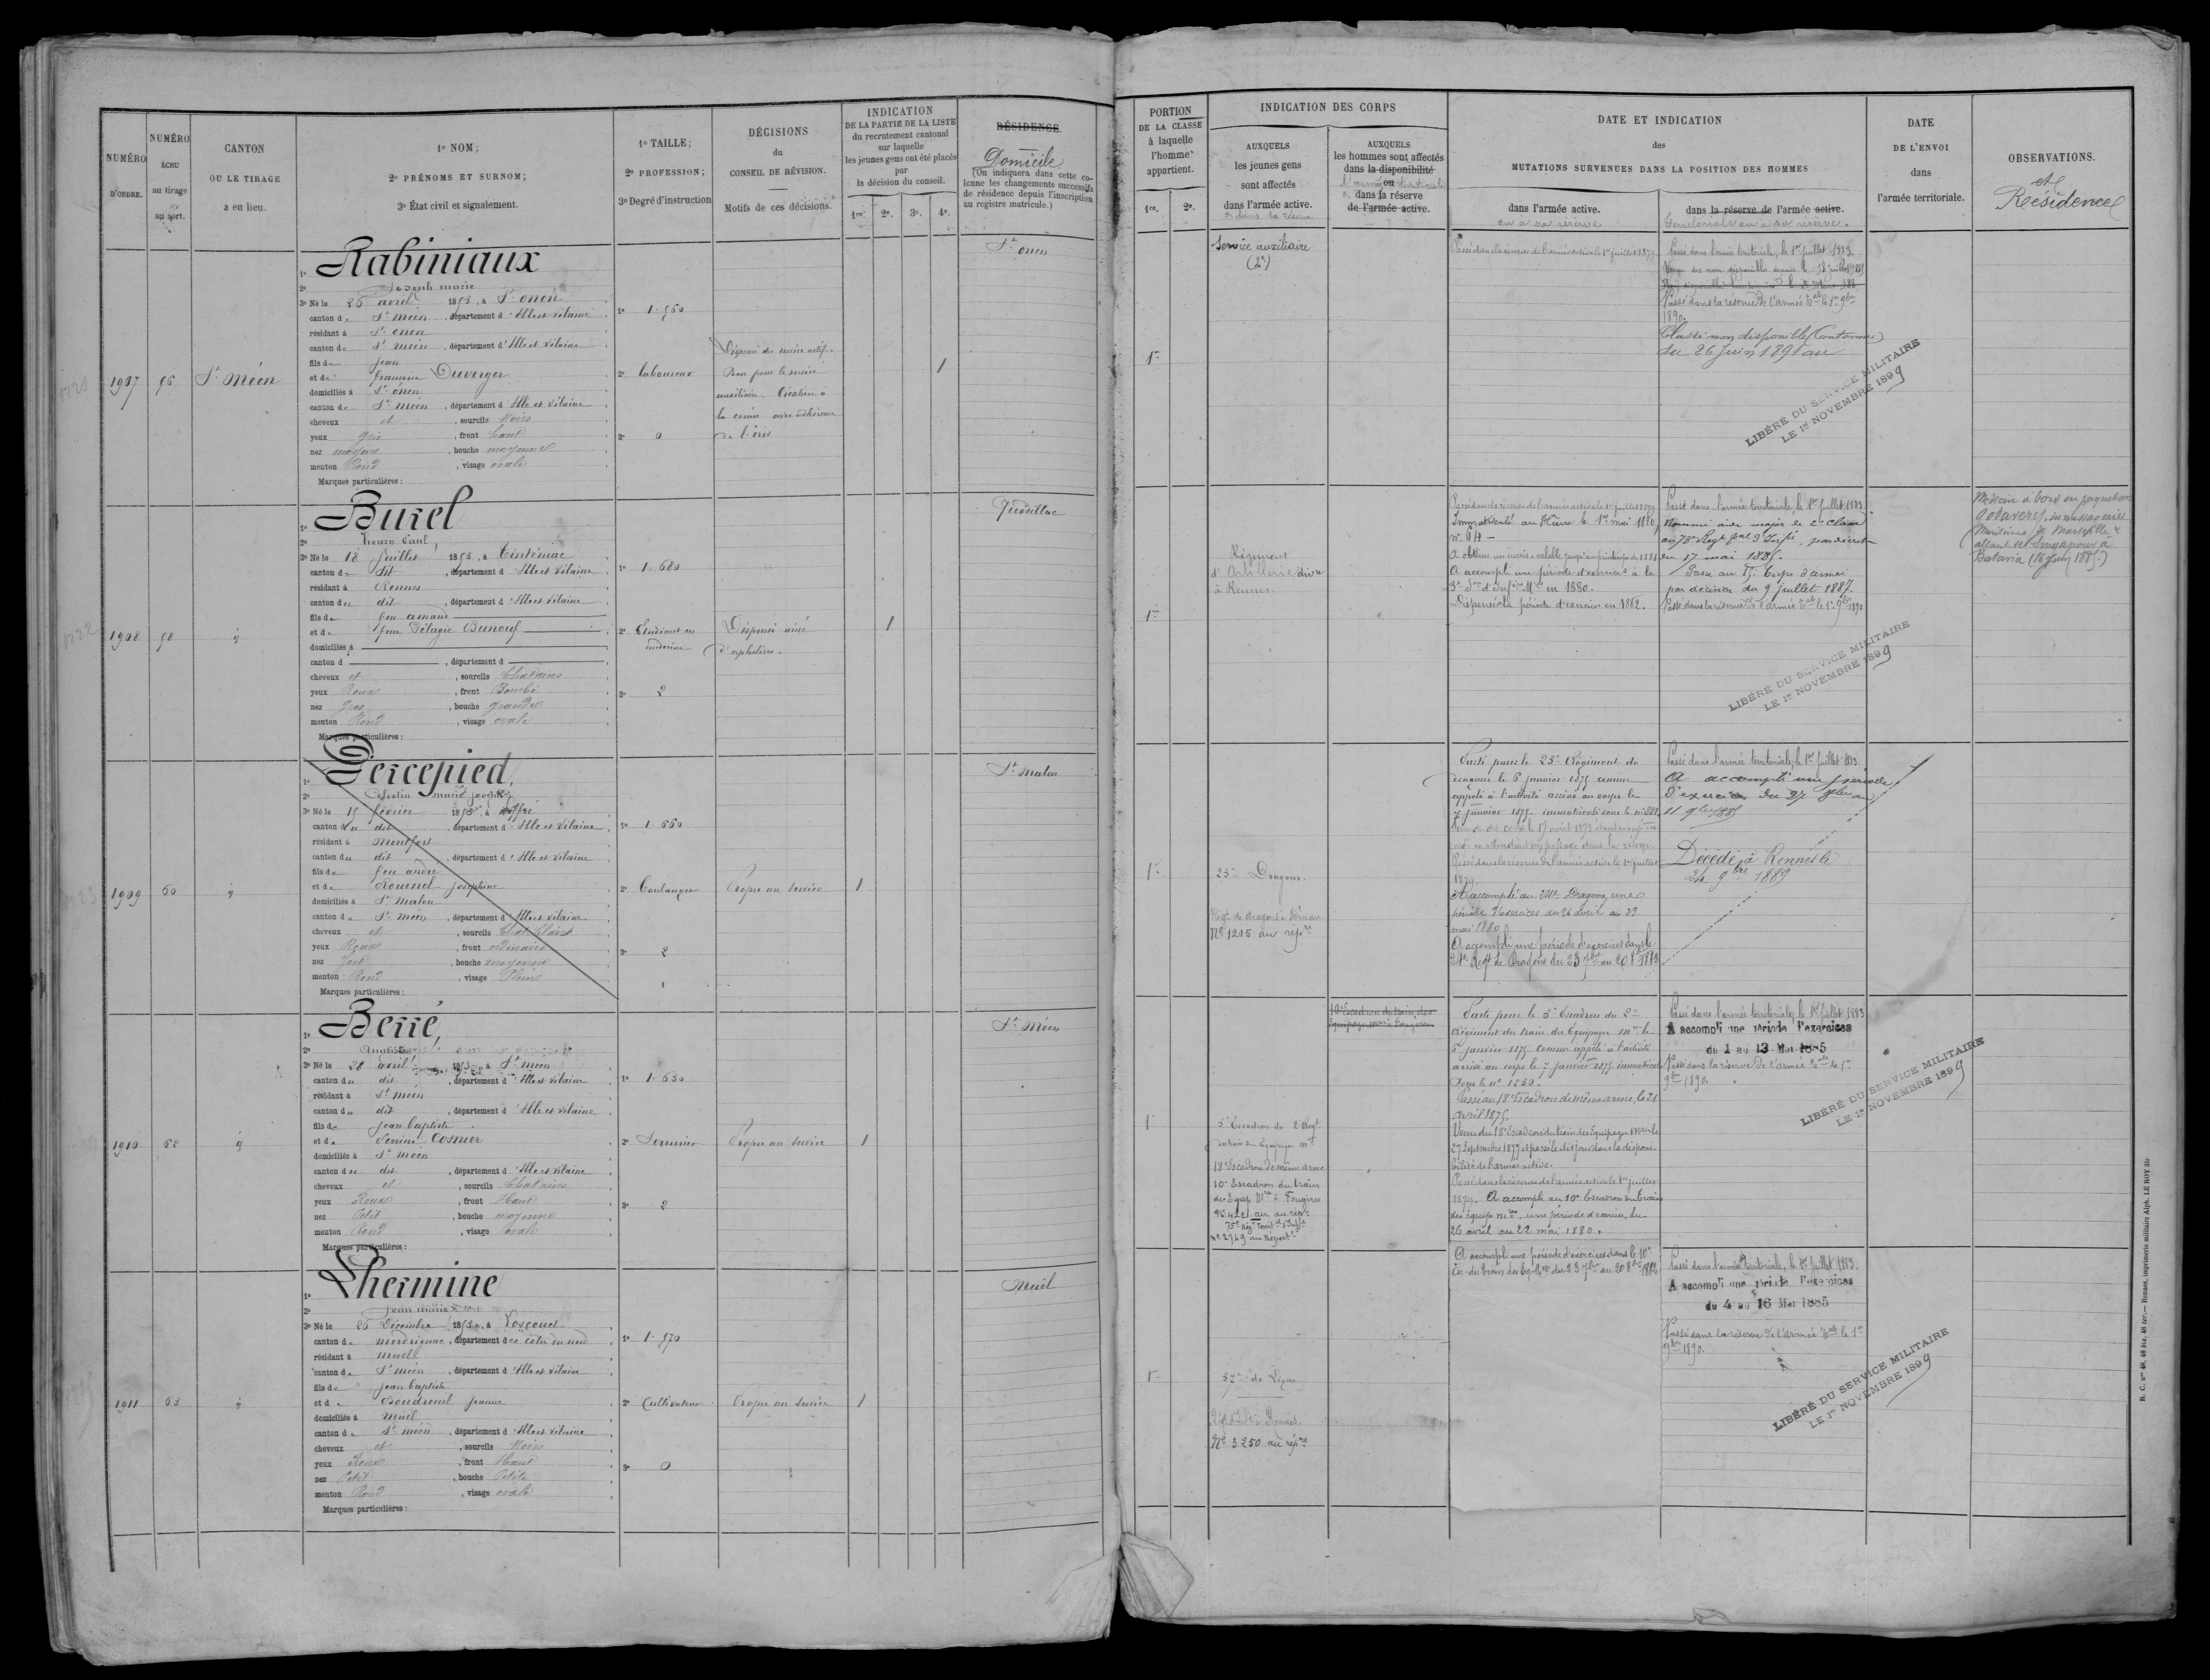 NUMÉRO
D'ORDRE.
NUMÉRO
ÉCHU
au tirage
au sort.
CANTON
OU LE TIRAGE
a eu lieu.
1º NOM;
2º PRÉNOMS ET SURNOM;
3º État civil et signalement.
1º TAILLE;
2º PROFESSION;
3º Degré d'instruction
DÉCISIONS
du
CONSEIL DE RÉVISION.
Motifs de ces décisions.
INDICATION
DE LA PARTIE DE LA LISTE
du recrutement cantonal
sur laquelle
les jeunes gens ont été placés
par
la décision du conseil.
1re. 2e. 3e. 4e.
RÉSIDENCE.
Domicile
(On indiquera dans cette co-
lonne les changements successifs
de résidence depuis l'inscription
au registre matricule.)
1907
56
St Méen
1º Rabiniaux
2º Joseph marie
3º Né le 26 avril 1853, à St onen
canton de St méen, département d'Ille et Vilaine
résidant à St onen
canton de St méen, département d'Ille et Vilaine
fils de Jean
et de francoise Duverger
domiciliés à St onen
canton de St méen, département d'Ille et Vilaine
cheveux et, sourcils Noirs
yeux gris, front haut
nez moyen, bouche moyenne
menton Rond, visage ovale
Marques particulières:
1º 1.560
2º laboureur
3º 0
Bon pour le service
de l'iris
1
St onen
1908
58
1º Burel
2º
3º Né le 18 juillet 1853, à Tinténiac
canton de dit, département d'Ille et Vilaine
résidant à Rennes
canton du dit, département d'Ille et Vilaine
fils de feu amant
et de feue Pélagie Dunouf
domiciliés à
canton d , département d
cheveux et, sourcils Chatains
yeux Roux, front Bombé
nez gros, bouche grande
menton Rond, visage ovale
Marques particulières:
1º 1.680
2º Etudiant en
médecine
3º 2
Dispensé ainé
d'orphelins.
1
Quédillac
1909
60
1º Percepied,
2º Célestin marie joseph
3º Né le 15 février 1853, à
canton du dit, département d'Ille et Vilaine
résidant à Montfort
canton du dit, département d'Ille et Vilaine
fils de feu andré
et de Rouenel Joséphine
domiciliés à St Malon
canton de St méen, département d'Ille et Vilaine
cheveux et, sourcils
yeux Roux, front ordinaire
nez fort, bouche moyenne
menton Rond, visage
Marques particulières:
1º 1.660
2º Boulanger
3º 2
Propre au service
1
St Malon
1910
62
1º Berré,
2º
3º Né le 28 avril 1853, à St méen
canton du dit, département d'Ille et Vilaine
résidant à St méen
canton du dit, département d'Ille et Vilaine
fils de jean baptiste
et de Perrine Cosnier
domiciliés à St méen
canton du dit, département d'Ille et Vilaine
cheveux et, sourcils Chatains
yeux Roux, front Haut
nez Petit, bouche moyenne
menton Rond, visage ovale
Marques particulières:
1º 1.630
2º Serrurier
3º 2
Propre au service
1
St Méen
1911
63
1º Lhermine
2º Jean marie
3º Né le 26 Décembre 1853, à Loscouet
canton de merdrignac, département des côtes du nord
résidant à muel
canton de St méen, département d'Ille et Vilaine
fils de jean baptiste
et de Coudreuil jeanne
domiciliés à muel
canton de St méen, département d'Ille et Vilaine
cheveux et, sourcils Noirs
yeux Roux, front Haut
nez Petit, bouche Petite
menton Rond, visage ovale
Marques particulières:
1º 1.570
2º Cultivateur
3º 0
Propre au service
1
Muël
PORTION
DE LA CLASSE
à laquelle
l'homme
appartient.
1re. 2e.
INDICATION DES CORPS
AUXQUELS
les jeunes gens
sont affectés
dans l'armée active.
ou dans la réserve
AUXQUELS
les hommes sont affectés
dans la disponibilité
ou
dans la réserve
de l'armée active.
DATE ET INDICATION
des
MUTATIONS SURVENUES DANS LA POSITION DES HOMMES
dans l'armée active.
ou à sa réserve
dans la réserve de l'armée active.
territoriale ou à sa réserve.
DATE
DE L'ENVOI
dans
l'armée territoriale.
OBSERVATIONS.
et
Résidences
1re
Service auxiliaire
Passé dans la réserve de l'armée active le 1er juillet 1879.
Passé dans l'armée territoriale, le 1er juillet 1883.
Passé dans la réserve de l'armée tale le 1er 9bre
1890.
Classé non disponible (Cantonnier)
du 26 Juin 1891 au
LIBÉRÉ DU SERVICE MILITAIRE
LE 1er NOVEMBRE 1899
1re
Régiment
d'Artillerie divre
à Rennes.
Passé dans la réserve de l'armée active le 1er juillet 1879
Immatriculé au Havre le 1er mai 1880,
nº 64
A accompli une période d'exercices à la
en 1880.
Dispensé de la période d'exercices en 1882.
Passé dans l'armée territoriale, le 1er juillet 1883
Nommé aide major de 2e classe
au 75e Regt tal d'Infie, par décret
du 17 mai 1885.
Passé au Corps d'armée
par décision du 9 juillet 1887.
Passé dans la réserve de l'armée tale le 1er 9bre 1890
LIBÉRÉ DU SERVICE MILITAIRE
LE 1er NOVEMBRE 1899
Médecin à bord du paquebot
Godavery, des messageries
Maritimes de Marseille
allant de Singapour à
Batavia (16 Juin 1885.)
1re
25e Dragons.
Nº 1215 au répre
Parti pour le 25e Régiment de
dragons le 6 janvier 1875 comme
appelé à l'activité arrivé au corps le
7 janvier 1875. immatriculé sous le nº
Passé dans la réserve de l'armée active le 1er juillet
1879
A accompli au 24e Dragons, une
période d'exercices du 26 avril au 23
mai 1880
A accompli une période d'exercices dans le
24e Regt de Dragons du 23 7bre au 20 8bre 1882
Passé dans l'armée territoriale, le 1er juillet 1883.
A accompli une période
d'exercices du
Décédé à Rennes le
24 9bre 1889
1re
5e Escadron du 2e Regt
18e Escadron de même arme
10e Escadron du train
des Equip. Mres à Fougères
75e Regt Territal d'Infie
nº 2749 au Répert.
10e Escadron du train des
Parti pour le 5e Escadron du 2e
Régiment du train des Equipages mres le
6 janvier 1875 comme appelé à l'activité
arrivé au corps le 7 janvier 1875 immatriculé
sous le nº 1250.
Passé au 18e Escadron de même arme, le 21
avril 1875.
Venu du 18e Escadron du train des Equipages Mres le
27 Septembre 1877 et passé le dit jour dans la disponi-
bilité de l'armée active.
Passé dans la réserve de l'armée active le 1er juillet
1879. A accompli au 10e Escadron du train
des équip. mres, une période d'exercices, du
26 avril au 22 mai 1880.
A accompli une période d'exercices dans le 10e
Esc. du train des Eq. Mres du 23 7bre au 20 8bre 1882
Passé dans l'armée territoriale, le 1er juillet 1883
A accompli une période d'exercices
du 1 au 13 Mai 1885
Passé dans la réserve de l'armée tale le 1er
9bre 1890.
LIBÉRÉ DU SERVICE MILITAIRE
LE 1er NOVEMBRE 1899
1re
57e de Ligne
Nº 3250 au répre
Passé dans l'armée territoriale, le 1er juillet 1883.
A accompli une période d'exercices
du 4 au 16 Mai 1885
Passé dans la réserve de l'armée tale le 1er
9bre 1890.
LIBÉRÉ DU SERVICE MILITAIRE
LE 1er NOVEMBRE 1899
R. C. nos 48, 48 bis, 48 ter.— Rennes, imprimerie militaire Alph. LE ROY fils